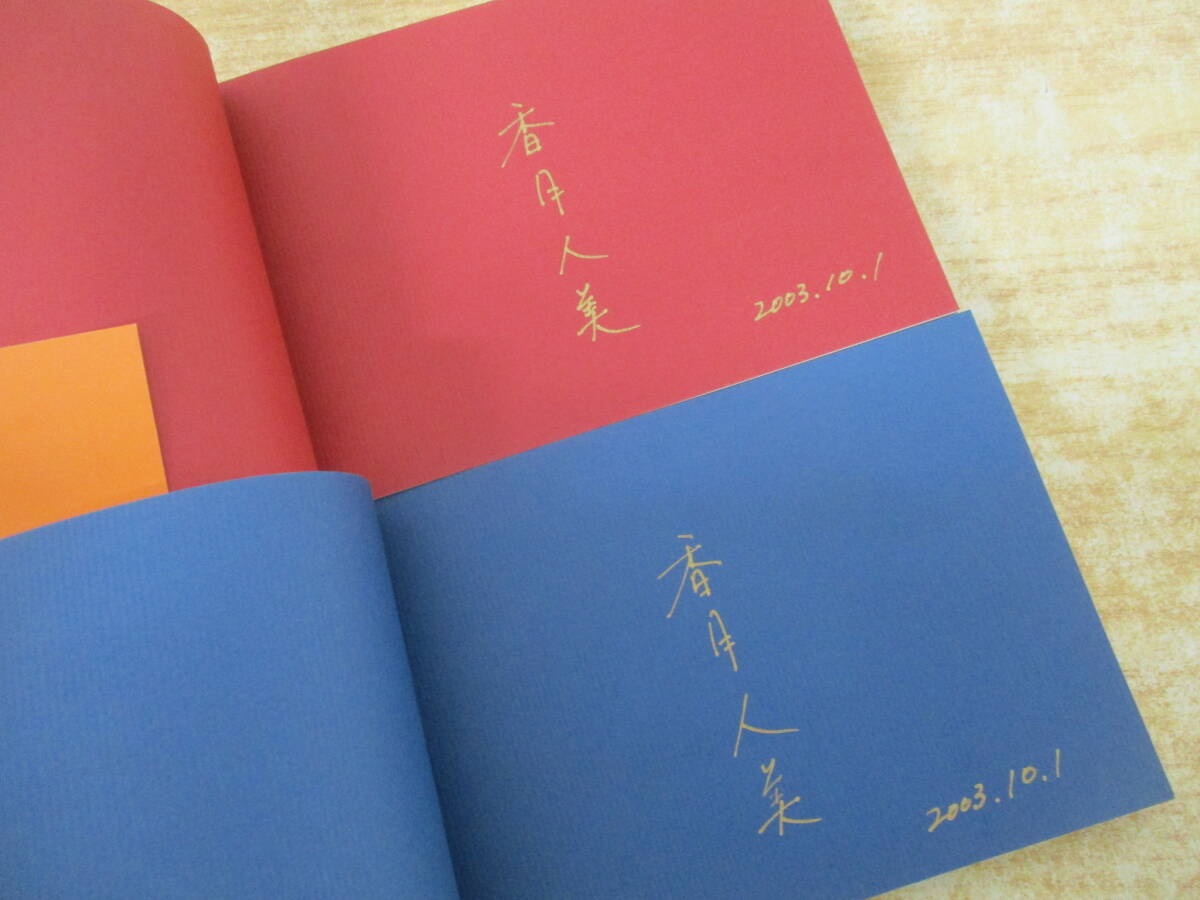 香月人美
2003.10.1
香月人美
2003.10.1